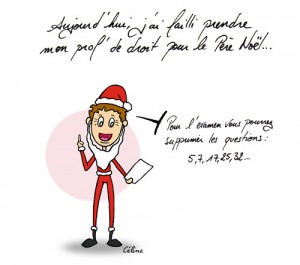 Aujourd'hui, j'ai failli prendre
mon prof' de droit pour le Père Noël...
Pour l'examen vous pourrez
supprimer les questions:
5,7,17,25,32...
Céline